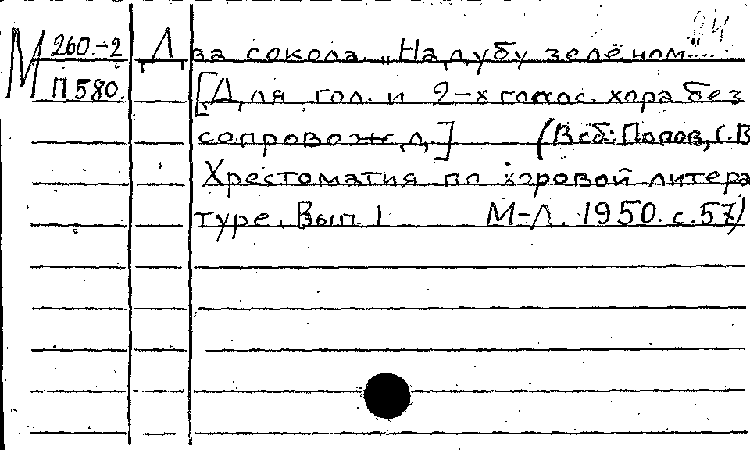 24
М 260.-2 Два сокола „На дубу зелёном"....
П 580. [Для гол. и 2-х голос. хора без
сопровожд.] (В сб: Попов, С.В
Хрестоматия по хоровой литера
туре. Вып 1 М-Л. 1950. с.57)